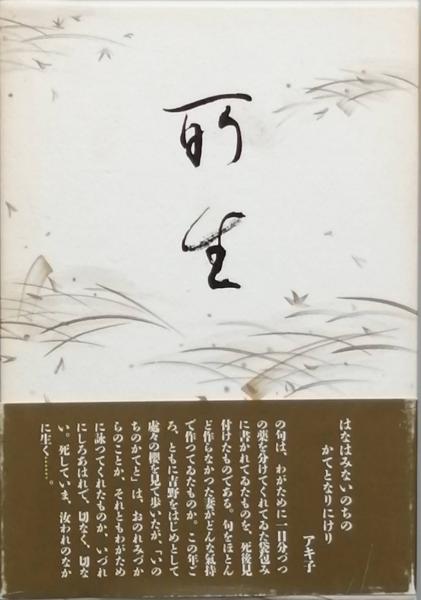 所生
はなはみないのちの
かてとなりにけり
アキ子
の句は、わがために一日分づつ
の薬を分けてくれてゐた袋包み
に書かれてゐたものを、死後見
付けたものである。句をほとん
ど作らなかつた妻がどんな気持
で作つてゐたものか。この年ご
ろ、ともに吉野をはじめとして
處々の櫻を見て歩いたが、「いの
ちのかてと」は、おのれみづか
らのことか、それともわがため
に詠つてくれたものか、いづれ
にしろあはれで、切なく、切な
い。死していま、汝われのなか
に生く……。